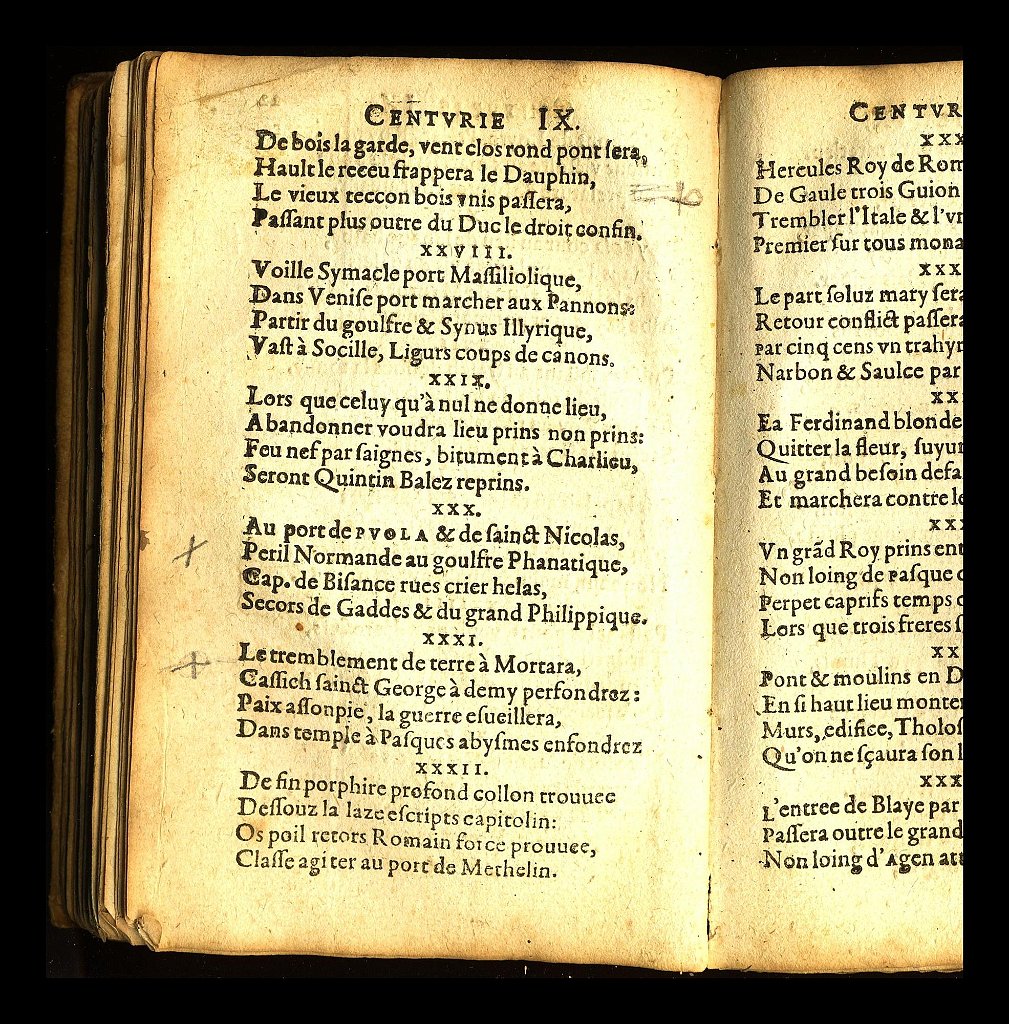 CENTVRIE IX.
De bois la garde, vent clos rond pont ſera,
Hault le receu frappera le Dauphin,
Le vieux teccon bois vnis paſſera,
Paſſant plus outre du Duc le droit confin.
XXVIII.
Voille Symacle port Maſſiliolique,
Dans Veniſe port marcher aux Pannons:
Partir du goulfre & Synus Illyrique,
Vaſt à Socille, Ligurs coups de canons.
XXIX.
Lors que celuy qu'à nul ne donne lieu,
Abandonner voudra lieu prins non prins:
Feu nef par ſaignes, bitument à Charlieu,
Seront Quintin Balez reprins.
XXX.
Au port de PVOLA & de ſainct Nicolas,
Peril Normande au goulfre Phanatique,
Cap. de Biſance rues crier helas,
Secors de Gaddes & du grand Philippique.
XXXI.
Le tremblement de terre à Mortara,
Caſſich ſainct George à demy perfondrez:
Paix aſſonpie, la guerre eſueillera,
Dans temple à Paſques abyſmes enfondrez
XXXII.
De fin porphire profond collon trouuee
Deſſouz la laze eſcripts capitolin:
Os poil retors Romain force prouuee,
Claſſe agiter au port de Methelin.
CENTVR
XXX
Hercules Roy de Rom
De Gaule trois Guion
Trembler l'Itale & l'vn
Premier ſur tous mona
XXX
Le part ſoluz mary ſera
Retour conflict paſſera
Par cinq cens vn trahyr
Narbon & Saulce par
XX
Ea Ferdinand blonde
Quitter la fleur, ſuyur
Au grand beſoin defa
Et marchera contre le
XXX
Vn grãd Roy prins ent
Non loing de Paſque c
Perpet caprifs temps c
Lors que trois freres ſ
XX
Pont & moulins en D
En ſi haut lieu monter
Murs, edifice, Tholoſ
Qu'on ne ſçaura ſon l
XXX
L'entree de Blaye par
Paſſera outre le grand
Non loing d'Agen att